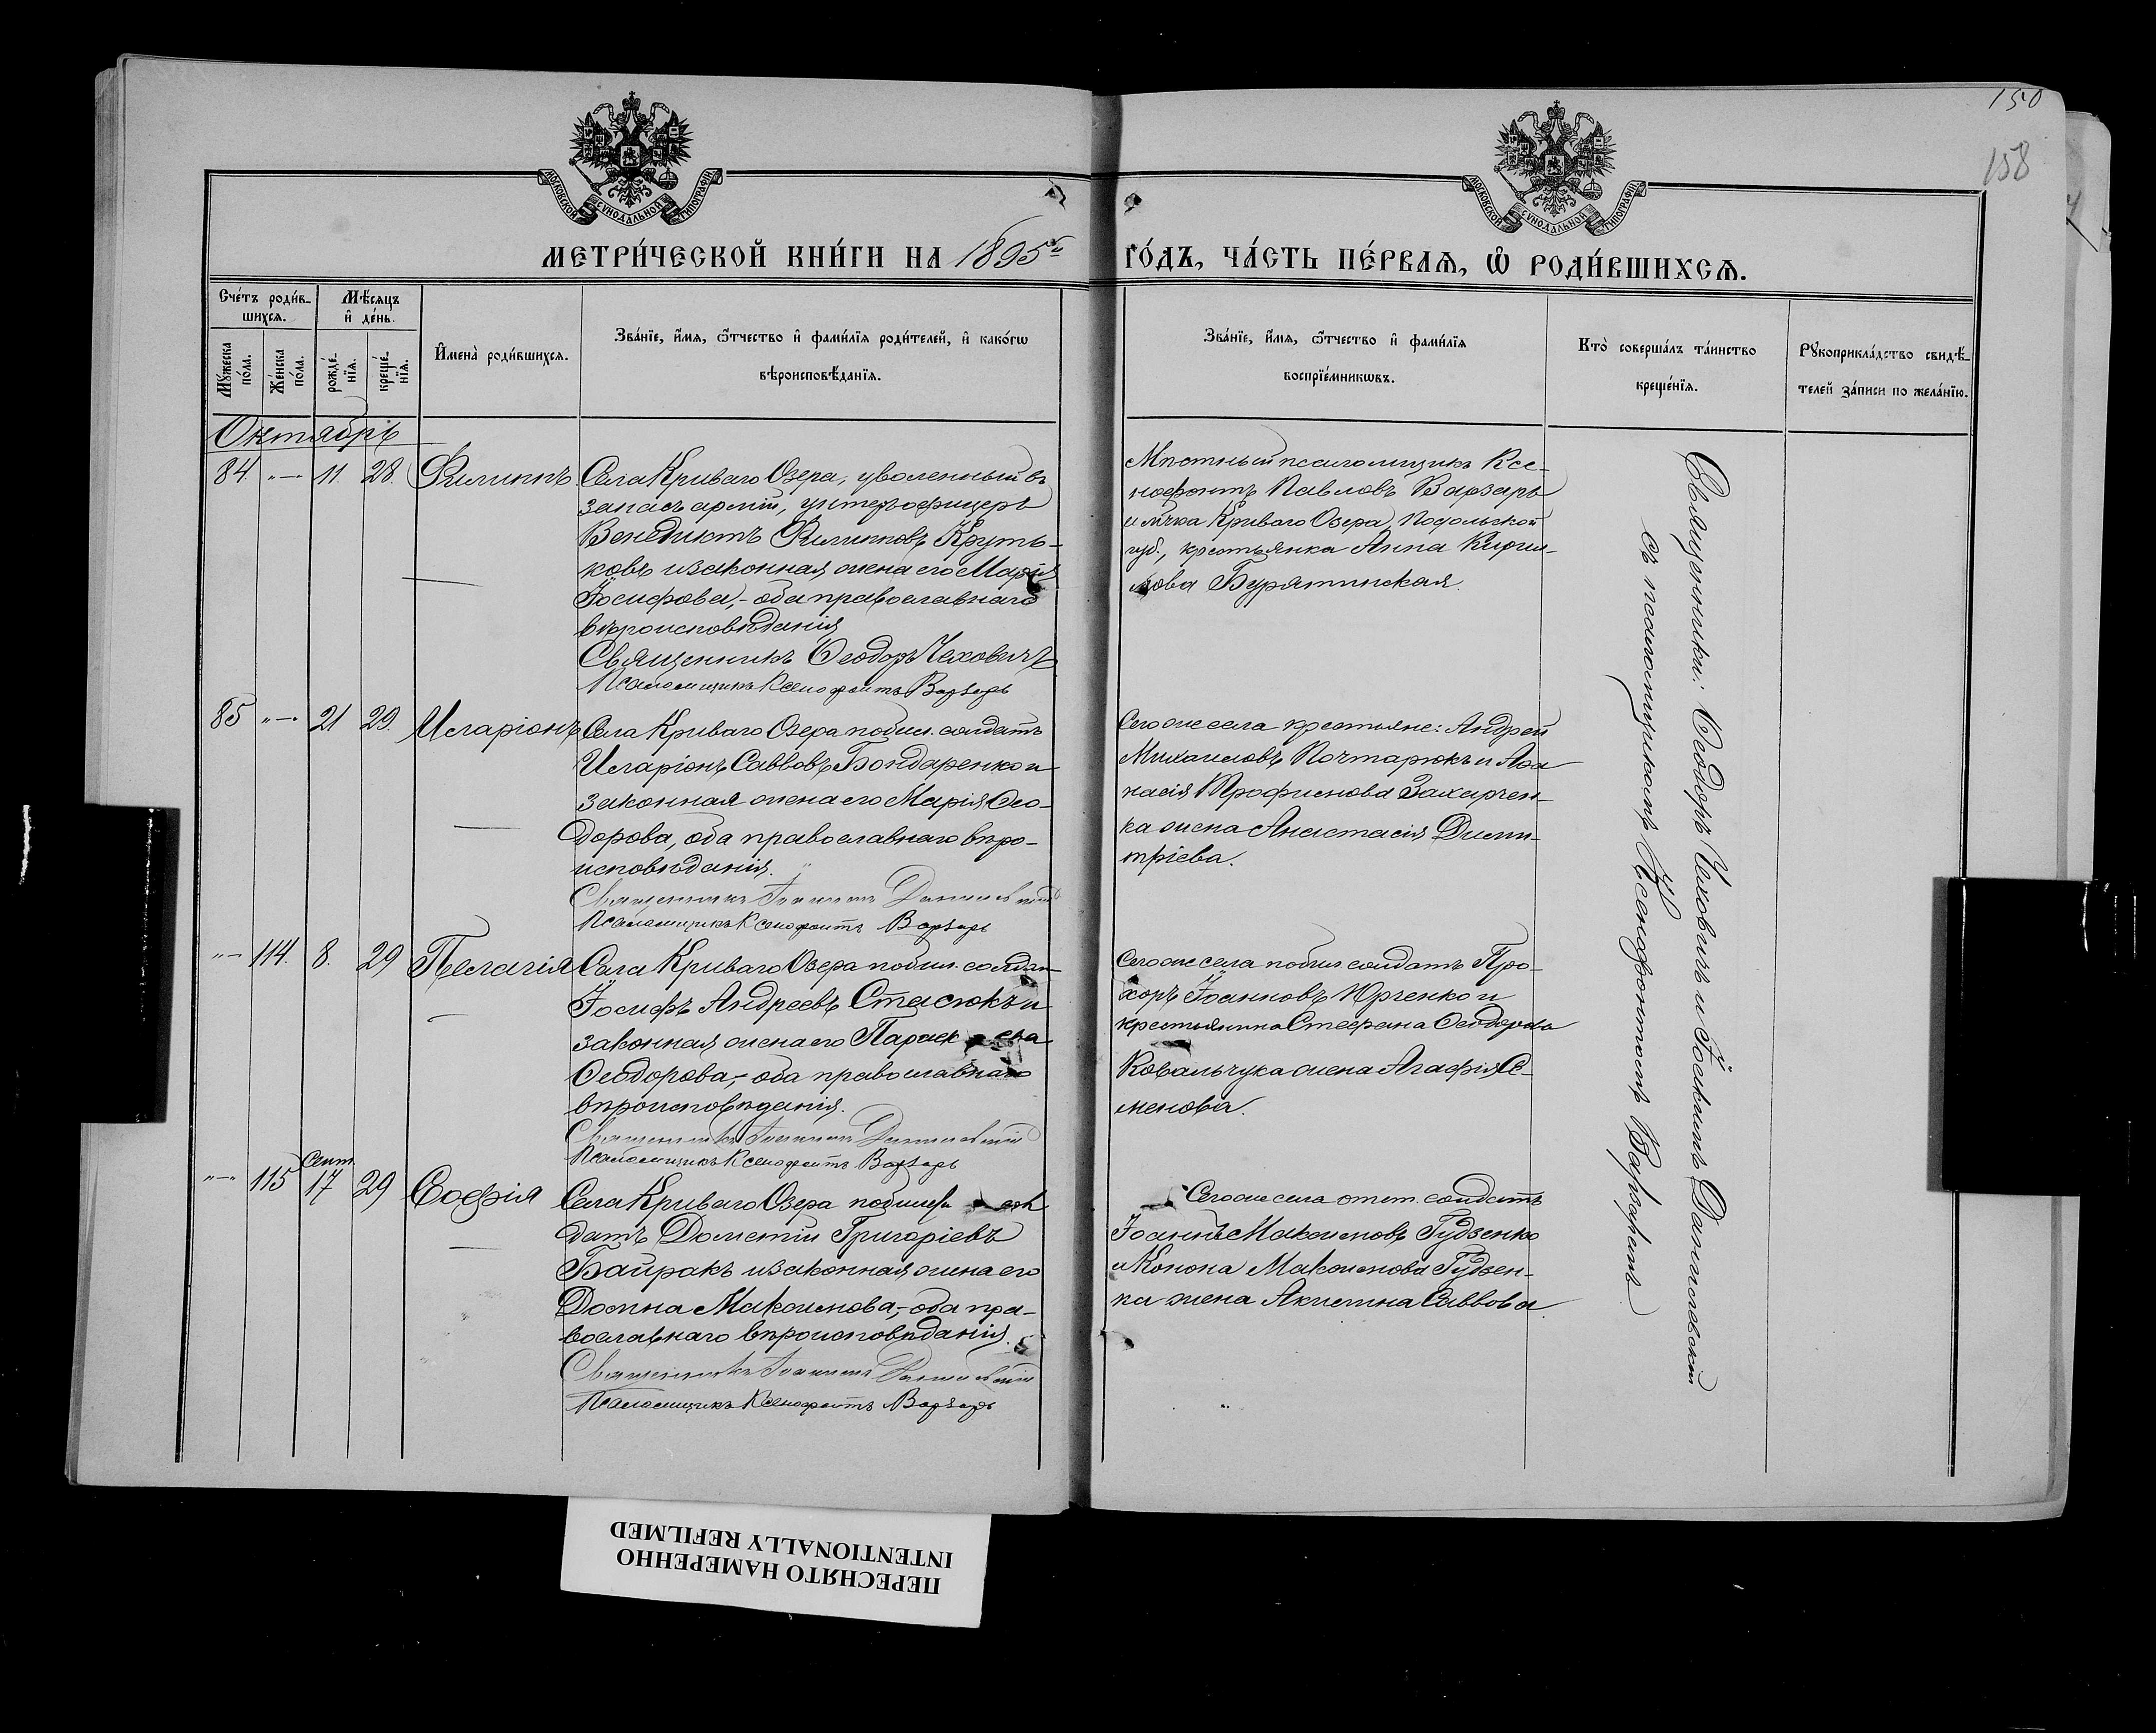 150
158
МОСКОВСКОЙ СѴНОДАЛЬНОЙ ТИПОГРАФІИ
МОСКОВСКОЙ СѴНОДАЛЬНОЙ ТИПОГРАФІИ
МЕТРИ́ЧЕСКОЙ КНИ́ГИ НА 1895й ГО́ДЪ, ЧА́СТЬ ПЕ́РВАЯ, Ѡ РОДИ́ВШИХСѦ.
Сче́тъ роди́в-
шихсѧ.
Мѣ́сѧцъ
и҆ де́нь.
Мꙋ́жеска
по́ла.
Же́нска
по́ла.
рожде́-
нїѧ.
креще́-
нїѧ.
И҆мена̀ роди́вшихсѧ.
Зва́нїе, и҆́мѧ, ѻ҆́тчество и҆ фами́лїѧ роди́телей, и҆ како́гѡ
вѣроисповѣ́данїѧ.
Зва́нїе, и҆́мѧ, ѻ҆́тчество и҆ фами́лїѧ
воспрїе́мникѡвъ.
Кто̀ соверша́лъ та́инство
креще́нїѧ.
Рꙋкоприкла́дство свидѣ́-
телей за́писи по жела́нїю.
Октябрь
84. "—" 11. 28. Филиппъ
Села Криваго Озера, уволенный въ
запасъ арміи, унтеръ-офицеръ
Венедиктъ Филипповъ Круть-
ковъ и законная жена его Марія
Іосифова,- оба православнаго
вѣроисповѣданія
Священникъ Ѳеодоръ Чеховичъ
Псаломщикъ Ксенофонтъ Варзарь
Мѣстный псаломщикъ Ксе-
нофонтъ Павловъ Варзарь
и мѣчка Криваго Озера, Подольской
губ., крестьянка Анна Кирил-
лова Бурятинская.
85 "—" 21 29. Иларіонъ
Села Криваго Озера побил. солдатъ
Иларіонъ Саввовъ Бондаренко и
законная жена его Марія Ѳео-
дорова, оба православнаго вѣро-
исповѣданія.
Священникъ Іоакимъ Данилевскій
Псаломщикъ Ксенофонтъ Варзарь
Сего же села крестьяне: Андрей
Михаиловъ Почтарюкъ и Аѳа
насія Трофимова Захарчен-
ка жена Анастасія Дими-
тріева.
"—" 114. 8. 29 Пелагія
Села Криваго Озера побил. солдатъ
Іосифъ Андреевъ Стасюкъ и
законная жена его Параскева
Ѳеодорова,- оба православнаго
вѣроисповѣданія.
Священникъ Іоакимъ Данилевскій
Псаломщикъ Ксенофонтъ Варзарь
Сего же села побил. солдатъ Про-
хоръ Іоанновъ Юрченко и
крестьянина Стефана Ѳеодорова
Ковальчука жена Агафія Се-
менова.
"—" 115 Сент. 17 29 Софія
Села Криваго Озера сол
датъ Дометій Григоріевъ
Байракъ и законная жена его
Домна Максимова,- оба пра-
вославнаго вѣроисповѣданія.
Священникъ Іоакимъ Данилевскій
Псаломщикъ Ксенофонтъ Варзарь
Сего же села отст. солдатъ
Іоаннъ Максимовъ Гудзенко
и Конона Максимова Гудзен-
ка жена Акилина Саввова.
Священники: Ѳеодоръ Чеховичъ и Іоакимъ Данилевскій
съ псаломщикомъ Ксенофонтомъ Варзаремъ.
ПЕРЕСНЯТО НАМЕРЕННО
INTENTIONALLY REFILMED